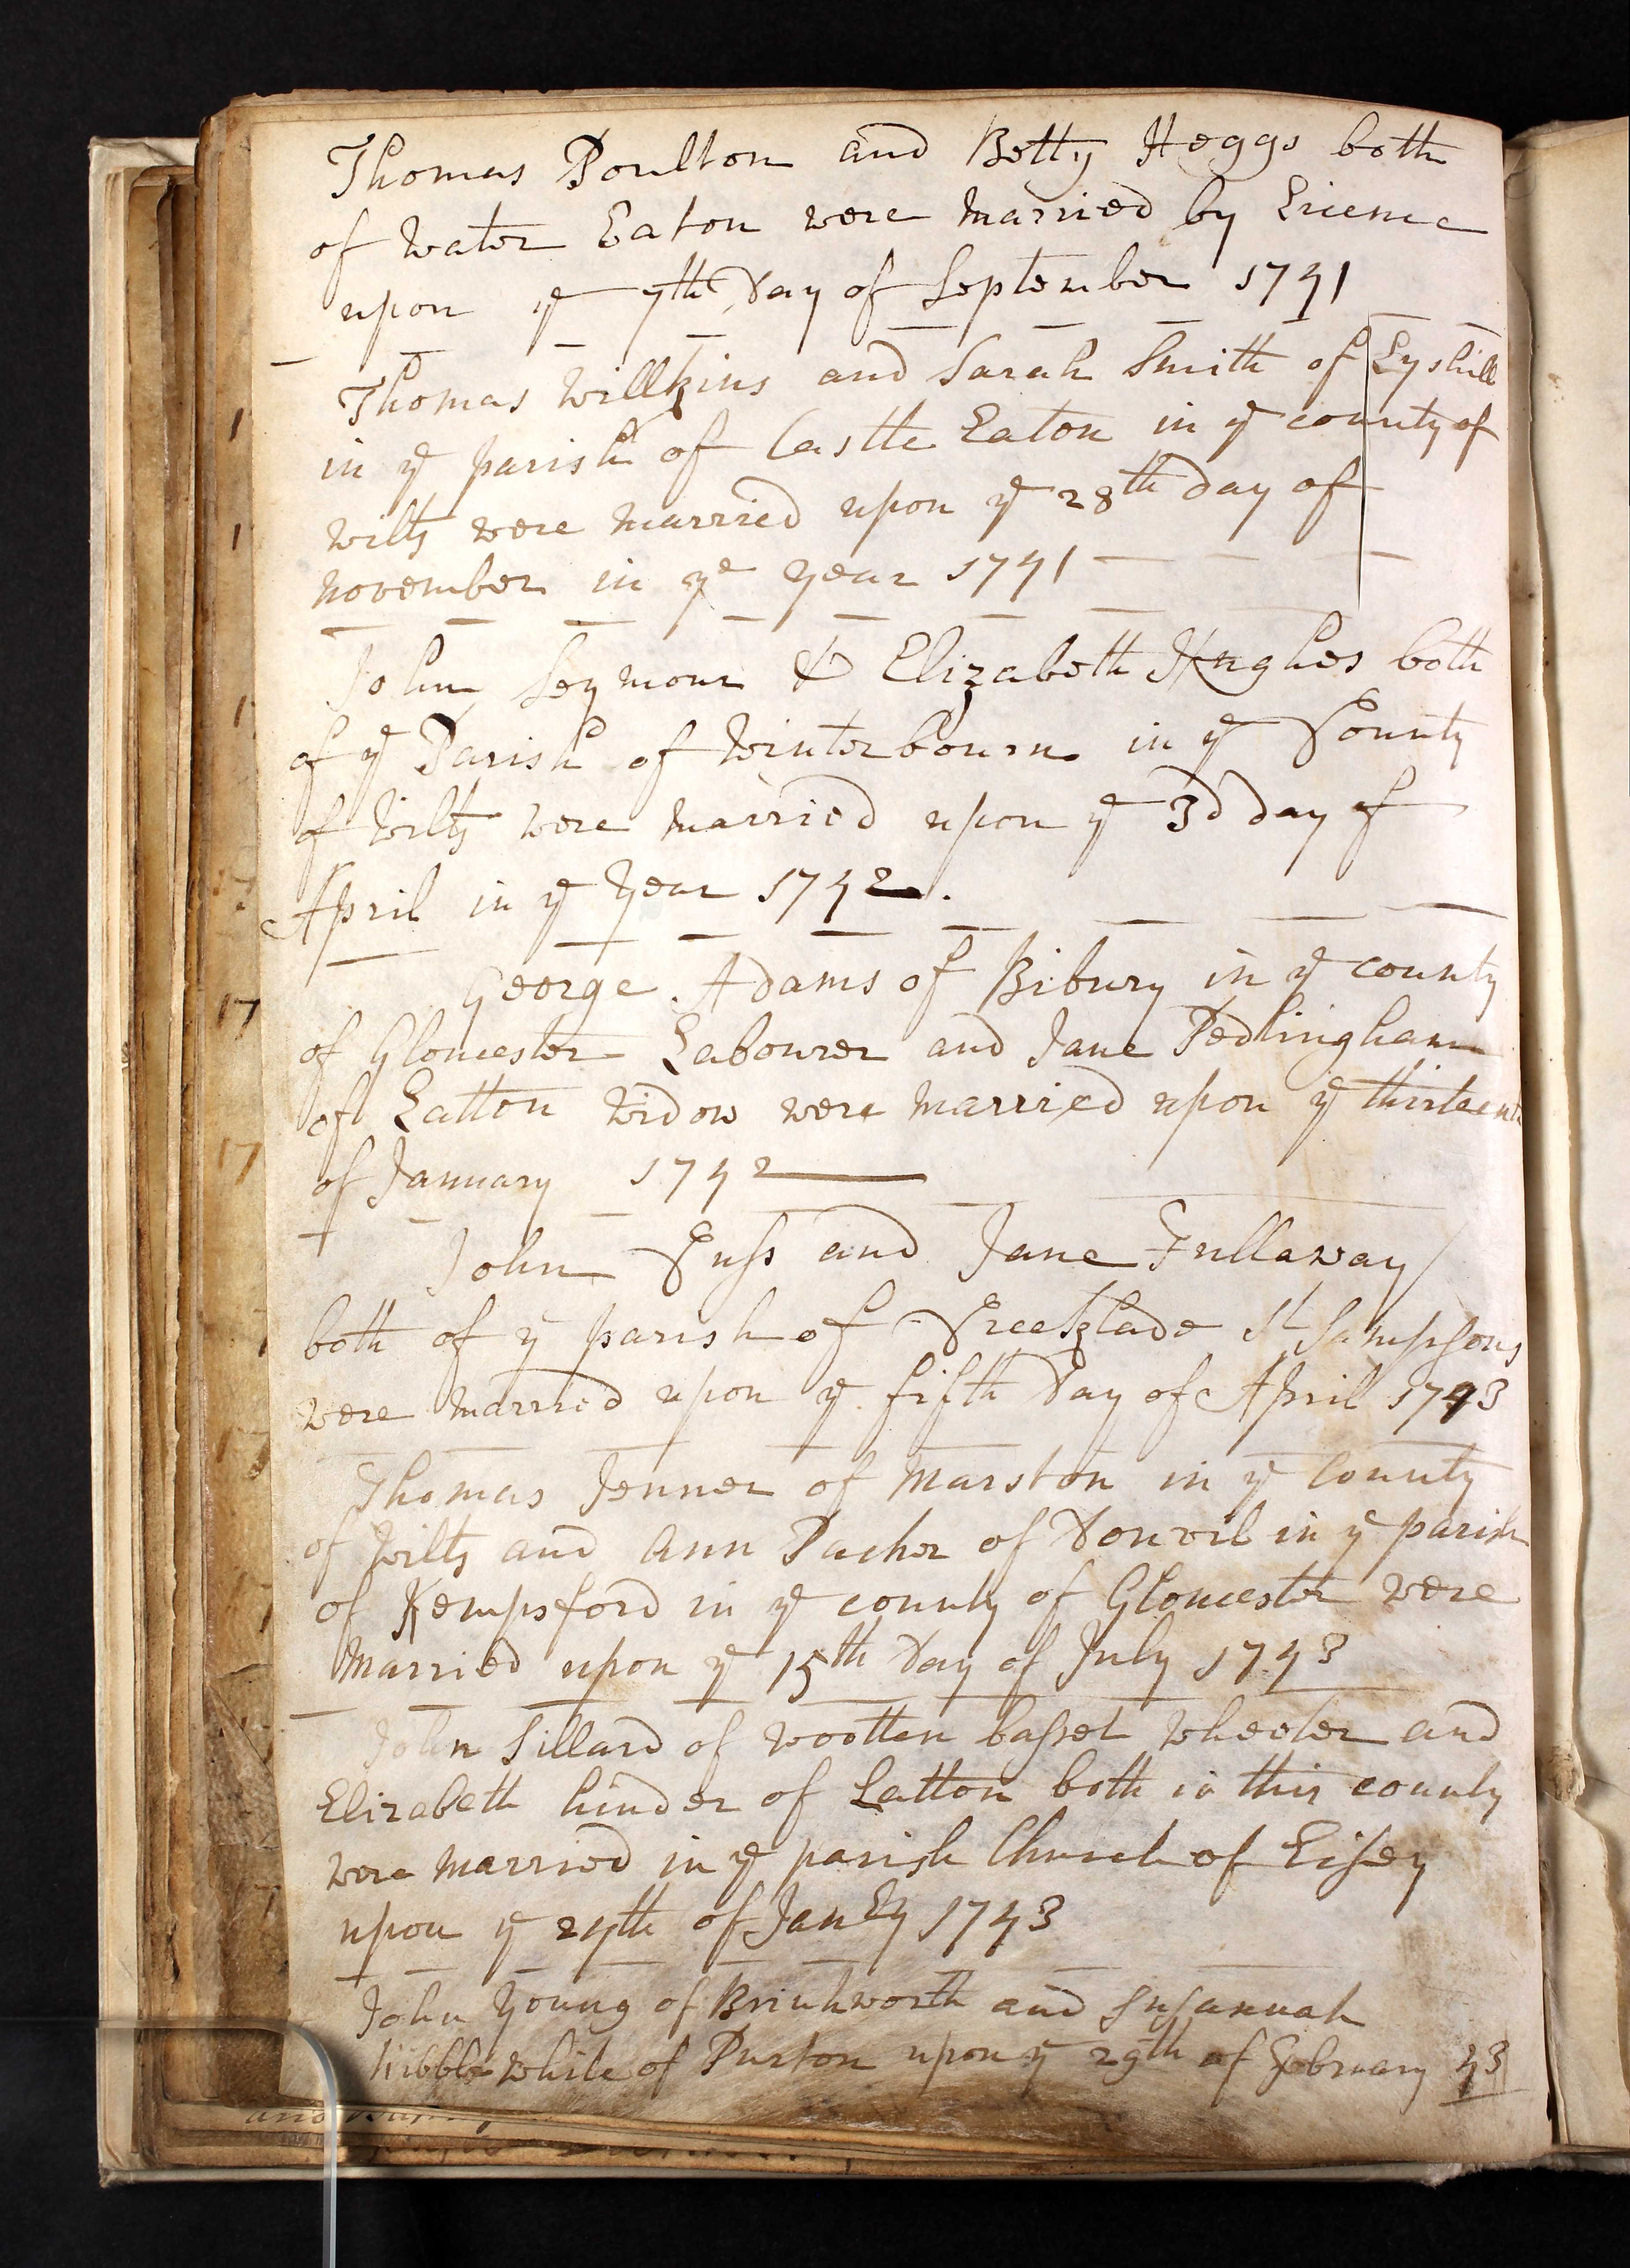 Thomas Poulton and Betty Heggs both
of Water Eaton were married by Licence
upon ye 7th Day of September 1741
Thomas Willkins and Sarah Smith of Lyshill
in ye parish of Castle Eaton in ye county of
wilts were married upon ye 28th day of
november in ye year 1741
John Seymour & Elizabeth Hughes both
of ye Parish of Winterbourn in ye County
of Wilts were married upon ye 3d day of
April in ye Year 1742.
George Adams of Bibury in ye county
of Gloucester Labourer and Jane Pedlingham
of Latton Widow were married upon ye thirteenth
of January 1742
John Cuss and Jane Fullaway
both of ye parish of Creeklade St Sampsons
were married upon ye fifth Day of April 1743
Thomas Jenner of Marston in ye County
of Wilts and Ann Packer of Donvil in ye parish
of Kempsford in ye county of Gloucester were
Married upon ye 15th Day of July 1743
John Sillard of wootten basset Wheeler and
Elizabeth hinder of Latton both in this county
were married in ye parish Church of Eisey
upon ye 27th of Janry 1743
John Young of Brinkworth and Susannah
hibble White of Purton upon ye 29th of February 43